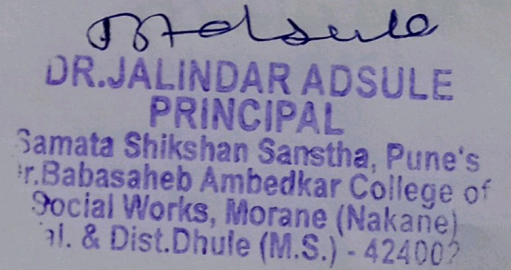 Adsule
DR.JALINDAR ADSULE
PRINCIPAL
Samata Shikshan Sanstha, Pune's
r.Babasaheb Ambedkar College of
Social Works, Morane (Nakane)
al. & Dist.Dhule (M.S.) - 424002